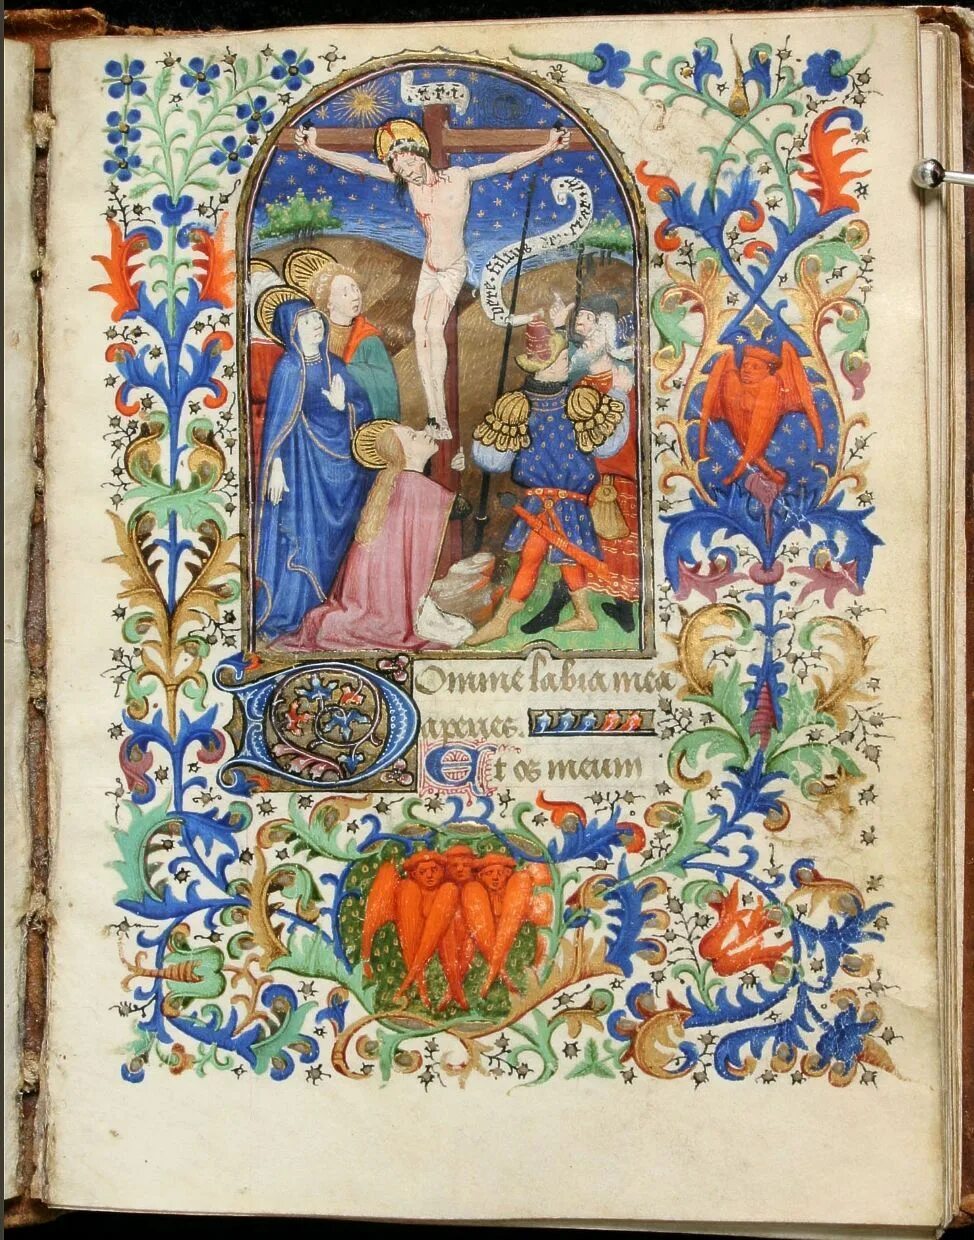 inri
vere filius dei erat
Domine labia mea
aperies.
Et os meum